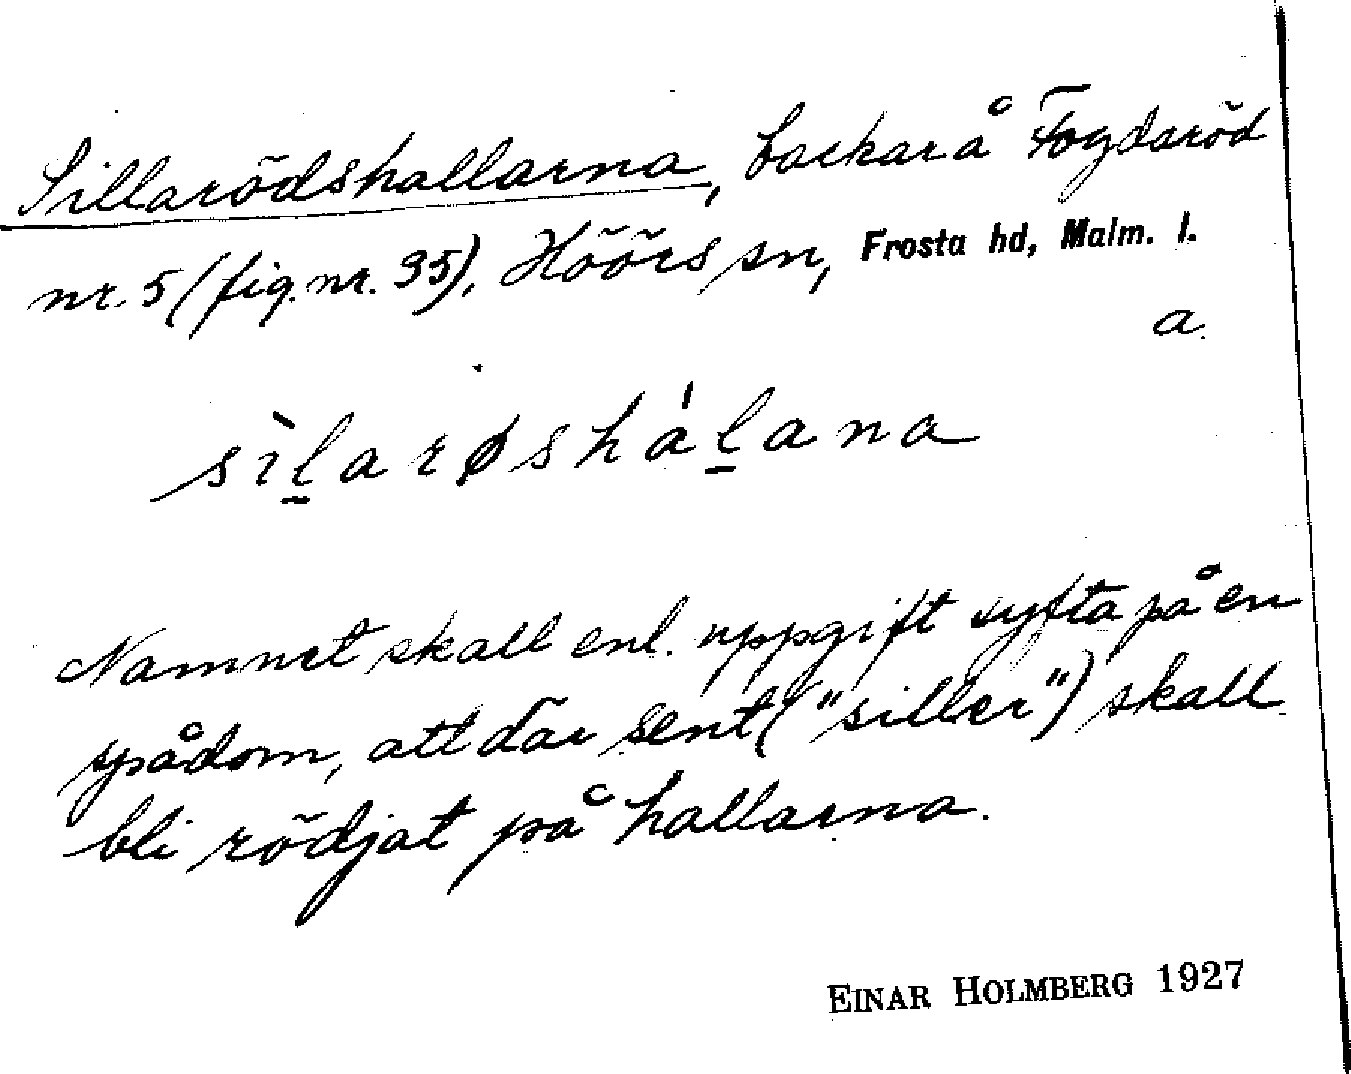 Sillarödshallarna, backar å Fogdaröd
nr. 5 (fig. nr. 35), Höörs sn, Frosta hd, Malm. l.
a.
sìl̲arøshál̲ana
Namnet skall enl. uppgift syfta på en
spådom, att där sent ("siller") skall
bli rödjat på hallarna.
EINAR HOLMBERG 1927